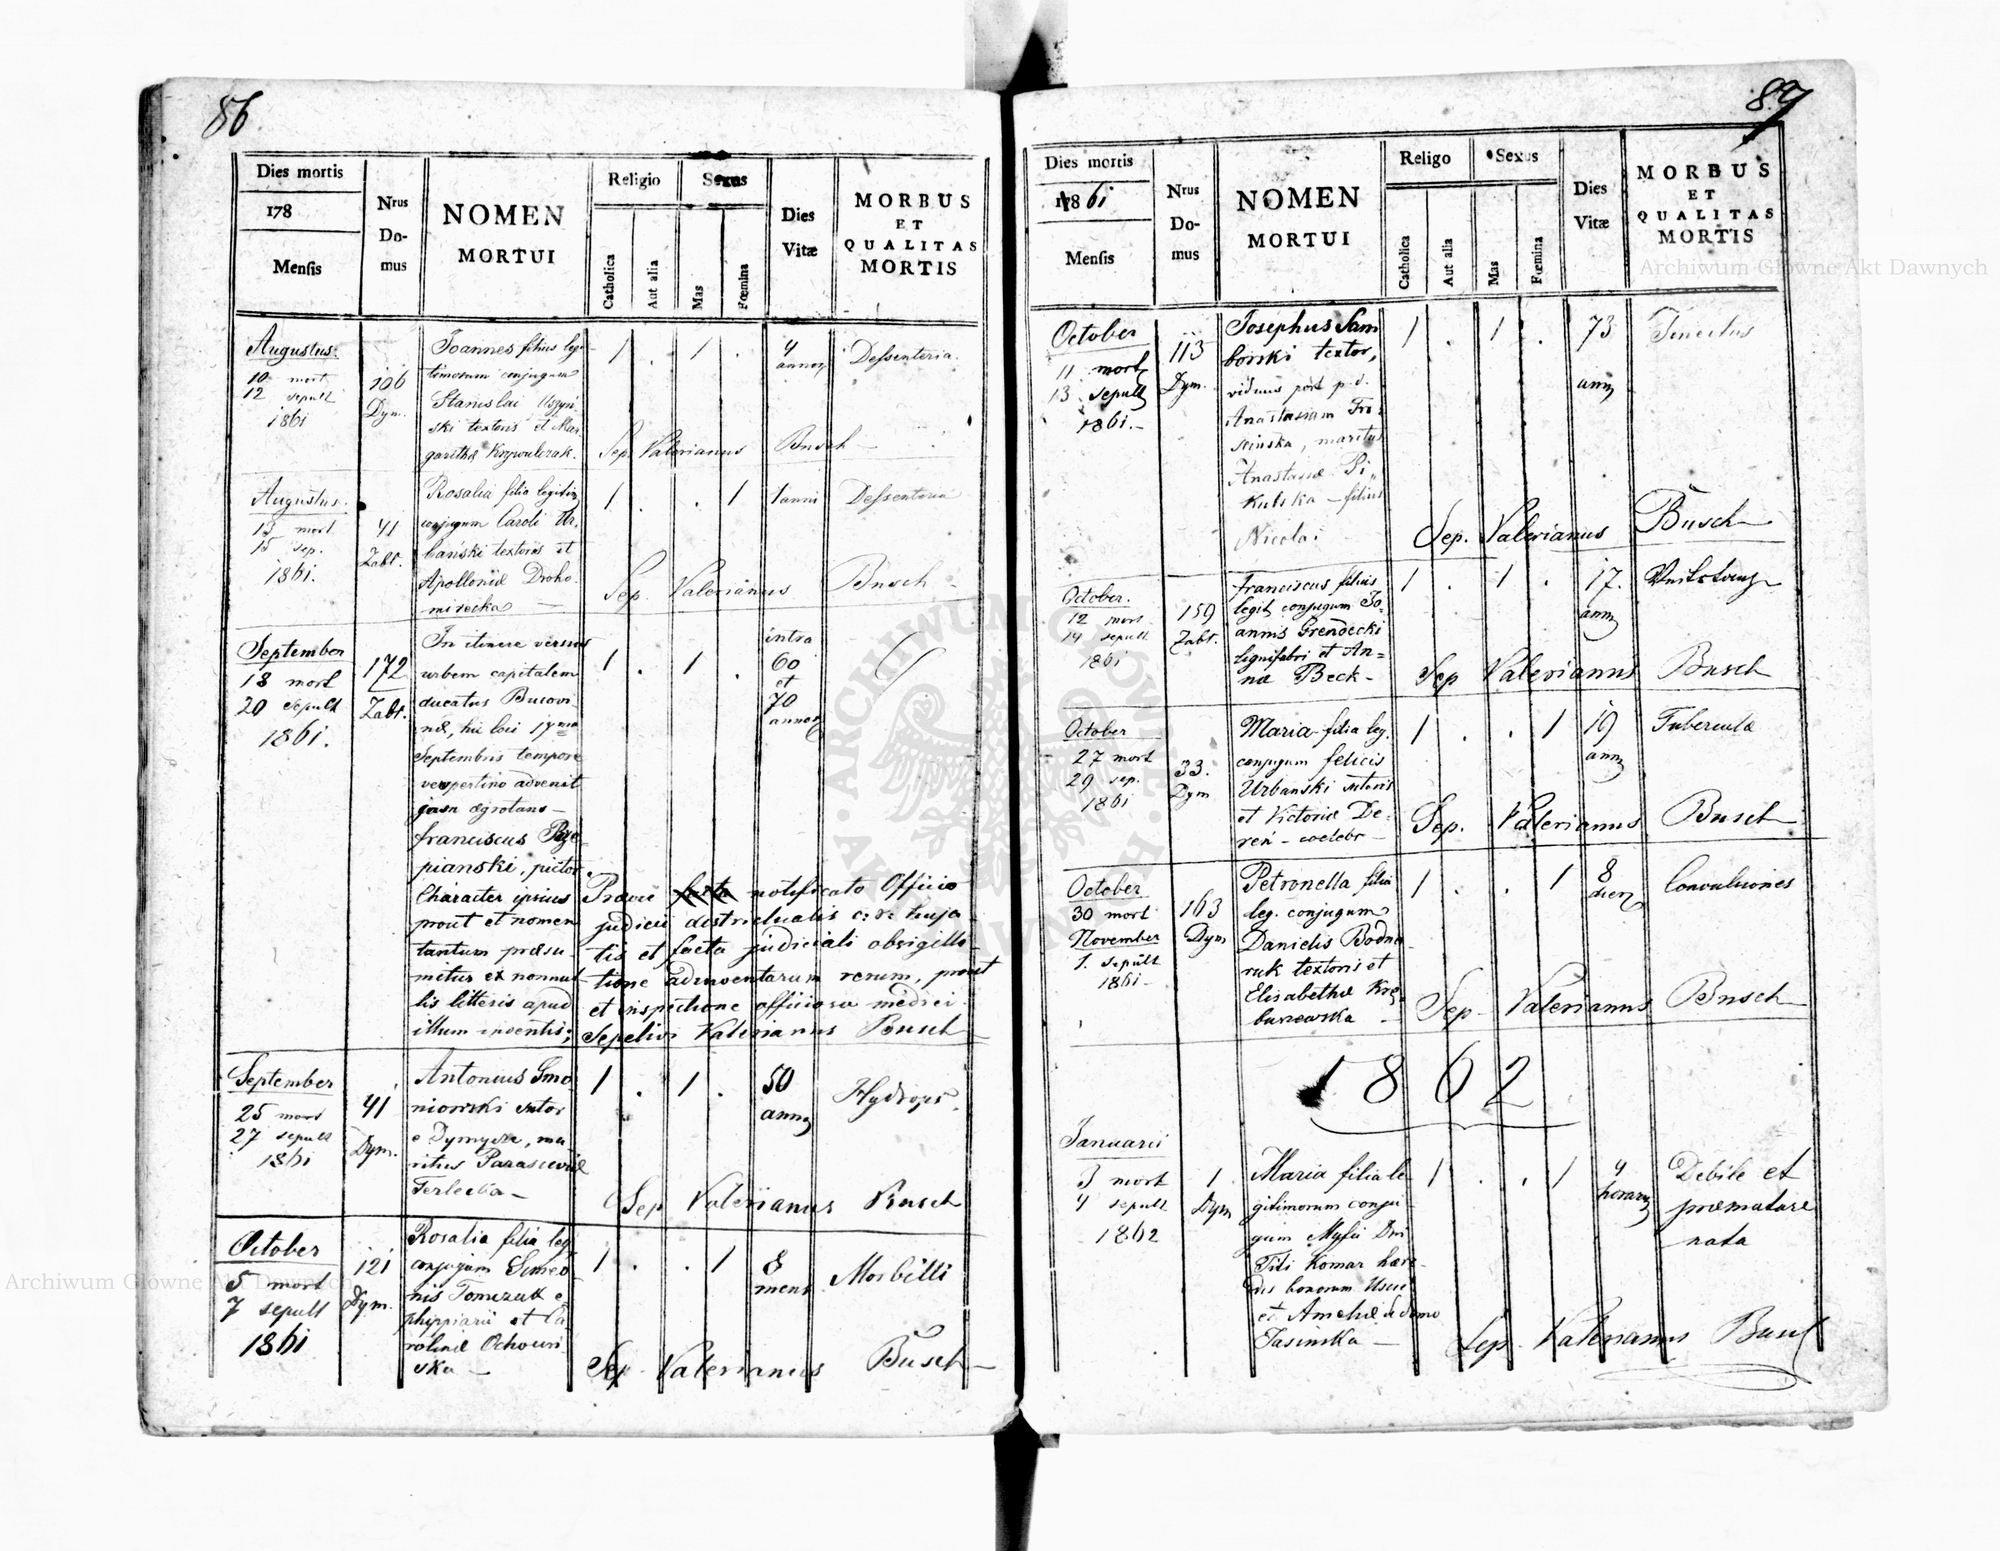 86
Dies mortis
178
Mensis
Nrus
Do-
mus
NOMEN
MORTUI
Religio
Catholica
Aut alia
Sexus
Mas
Fœmina
Dies
Vitæ
MORBUS
ET
QUALITAS
MORTIS
Augustus.
10 mort
12 sepult
1861
106
Dym.
Joannes filius legi-
timorum conjugum
Stanislai
ski textoris et Mar
garithæ
1 . 1 .
4
annor
Dessenteria.
Sep. Valerianus Busch
Augustus.
13 mort
15 sep.
1861.
41
Zabł.
Rosalia filia legitim
conjugum Caroli Ur,
bański textoris et
Apolloniæ Droho-
mirecka
1 . . 1
1 anni
Dessenteria
Sep. Valerianus Busch
September
18 mort
20 sepult
1861.
172
Zabł.
In itinere versus
urbem capitalem
ducatus Bucovi-
næ, huc loci 17ma
Septembris tempore
vespertino advenit
jam ægrotans
franciscus
pianski, pictor.
Character ipsius
prout et nomen
tantum præsu-
mitur ex nonnul-
lis litteris apud
illum inventis;
1 . 1 .
intra
60
et
70
annor
Prævie facta notificato Officio
judicii districtualis c: r: huja-
tis et facta judiciali obsigilla-
tione adinventarum rerum, prout
et inspectione officiosa medici
Sepelivi Valerianus Busch
September
25 mort
27 sepult
1861
41
Dym.
Antonius Smo
niowski sutor
e Dymycze, ma
ritus Parasceviæ
Terlecka
1 . 1 .
50
ann
Hydrops.
Sep Valerianus Busch
October
5 mort
7 sepult
1861
121
Dym.
Rosalia filia leg
conjugum Simeo
nis Tomczuk e-
phippiarii et Ca
rolinæ Ochowi-
ska
1 . . 1
8
mens
Morbilli
Sep Valerianus Busch
87
Dies mortis
1861
Mensis
Nrus
Do-
mus
NOMEN
MORTUI
Religo
Catholica
Aut alia
Sexus
Mas
Fœmina
Dies
Vitæ
MORBUS
ET
QUALITAS
MORTIS
October
11 mort
13 sepult
1861.
113
Dym.
Josephus Sam
borski textor,
viduus post p. d.
Anastasiam
maritus
Anastasiæ Pi,,
kulska filius
Nicolai
1 . 1 .
73
ann
Senectus
Sep. Valerianus Busch
October.
12 mort
14 sepult
1861
159
Zabł.
Franciscus filius
legit, conjugum Jo-
annis Grendecki
lignifabri et An=
næ Beck
1 . 1 .
17.
ann
Sep Valerianus Busch
October
27 mort
29 sep.
1861
33.
Dym
Maria filia leg.
conjugum felicis
Urbanski sutoris
et Victoriæ De-
ren cœlebs
1 . . 1
19
ann
Tubercula
Sep. Valerianus Busch
October
30 mort
November
1. sepult
1861
163
Dym
Petronella filia
leg. conjugum
Danielis Bodna-
ruk textoris et
Elisabethæ
1 . . 1
8
dier
Convulsiones
Sep Valerianus Busch
1862
Januarii
3 mort
4 sepult
1862
1.
Dym
Maria filia le
gitimorum conju
gum
Titi Komar hære-
dis bonorum
et Ameliæ de domo
Jasinska
1 . . 1
4
horar
Debile et
præmature
nata
Sep. Valerianus Busch
Archiwum Główne Akt Dawnych
Archiwum Główne Akt Dawnych
ARCHIWUM GŁÓWNE AKT DAWNYCH